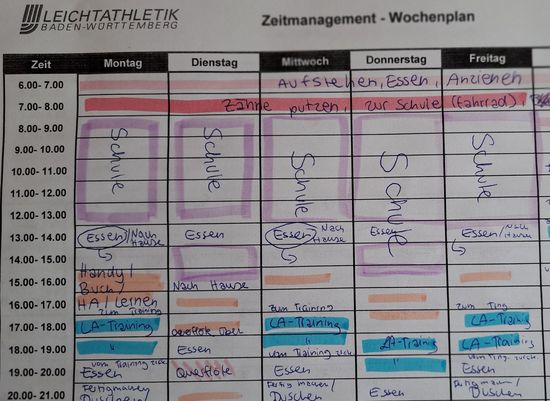 LEICHTATHLETIK
BADEN-WÜRTTEMBERG
Zeitmanagement - Wochenplan
Zeit Montag Dienstag Mittwoch Donnerstag Freitag
6.00- 7.00 Aufstehen, Essen, Anziehen
7.00- 8.00 Zähne putzen, zur Schule (Fahrrad),
8.00- 9.00
Schule Schule Schule Schule Schule
9.00- 10.00
10.00- 11.00
11.00- 12.00
12.00- 13.00
13.00- 14.00 Essen/Nach Hause Essen Essen Nach Hause Essen Essen/Nach Hause
14.00- 15.00
15.00- 16.00 Handy/ Buch/ Nach Hause
16.00- 17.00 HA/Lernen
zum Training zum Training zum
17.00- 18.00 LA-Training Querflöte üben LA-Training LA-Training
18.00- 19.00 " Essen " LA-Training LA-Training
vom Training zrck. vom Training zrck.
19.00- 20.00 Essen Querflöte Essen " Essen
20.00- 21.00 Fertigmachen/ Duschen Essen Duschen